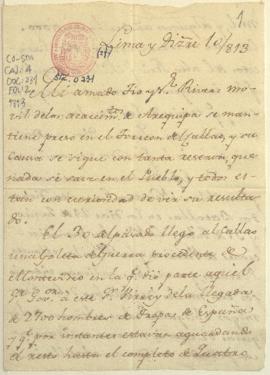 1
Lima y Dizre 10/813
CO-STA
CAJ: 4
DOC: 231
FOL: 2
1813
Mi amado Tio y Sr. Rivero mo-
vil de los acaecimtos de Arequipa se man-
tiene preso en el Torreon del Callao, y su
causa se sigue con tanta reserva, que
nada se save en el Pueblo, y todos es-
tan con curiosidad de ver su resulta-
do.
El 30 del pasado llego al Callao
una Goleta de Guerra procedente de
Montevideo en la q. dio parte aquel
Sr. Gov.or a este Sr. Virrey de la llegada
de 2700 hombres de Tropas de España
y q. por instantes estavan aguardando
el resto hasta el completo de quatro